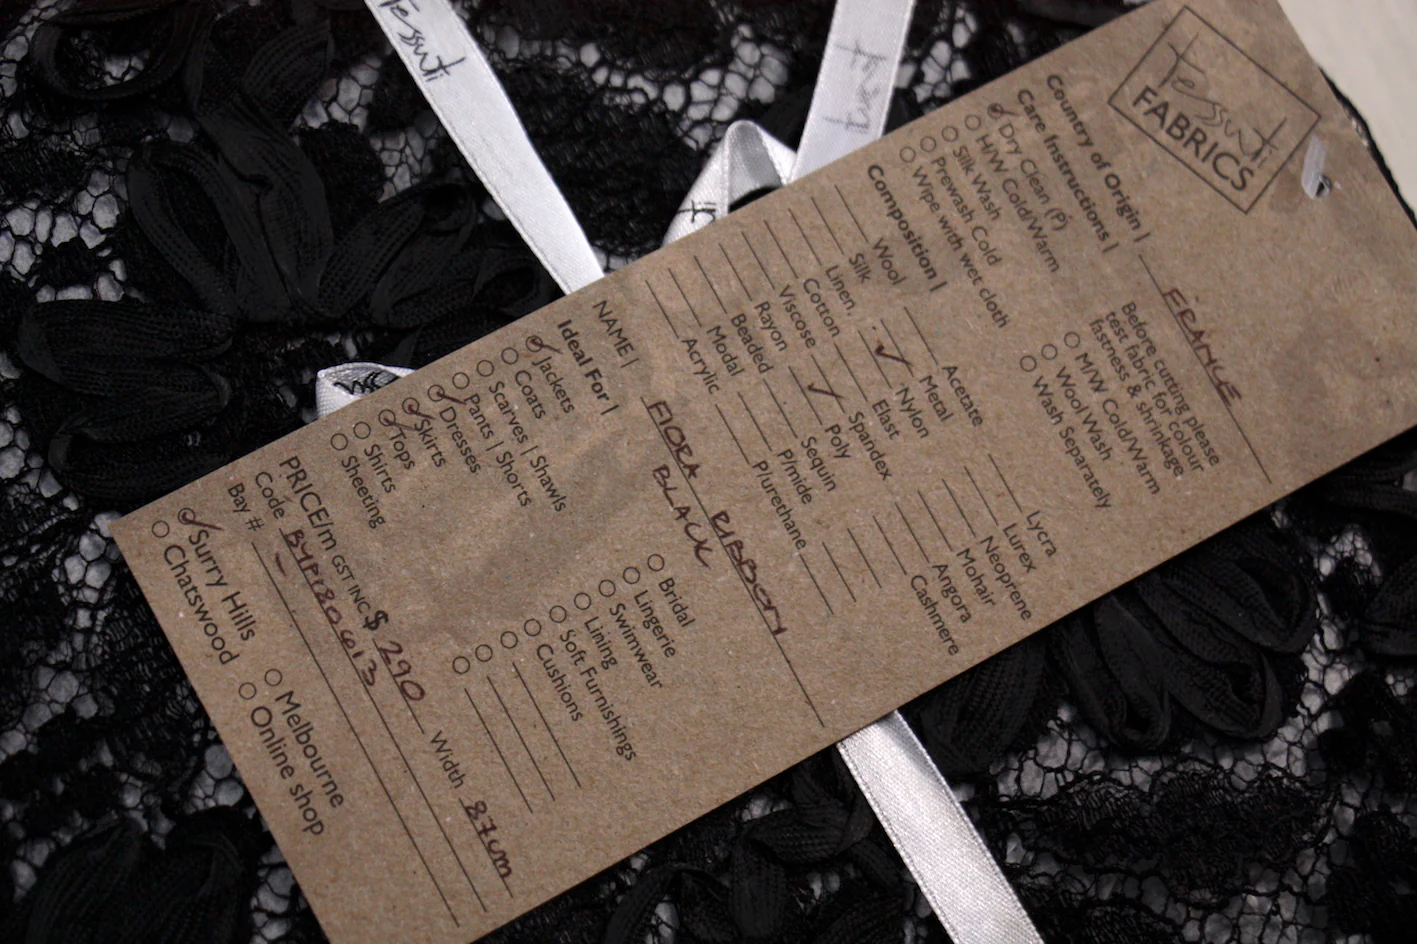 Tessuti
Tessuti
Tessuti
FABRICS
Country of Origin | FRANCE
Care Instructions |
Dry Clean (P)
H/W Cold/Warm
Silk Wash
Prewash Cold
Wipe with wet cloth
Before cutting please
test fabric for colour
fastness & shrinkage
M/W Cold/Warm
Wool Wash
Wash Separately
Composition |
Wool
Silk
Linen
Cotton
Viscose
Rayon
Beaded
Modal
Acrylic
Acetate
Metal
✓ Nylon
Elast
Spandex
✓ Poly
Sequin
P/mide
P/urethane
Lycra
Lurex
Neoprene
Mohair
Angora
Cashmere
NAME | FIORA RIBBONY
BLACK
Ideal For |
Jackets
Coats
Scarves | Shawls
Pants | Shorts
Dresses
Skirts
Tops
Shirts
Sheeting
Bridal
Lingerie
Swimwear
Lining
Soft Furnishings
Cushions
PRICE/m GST INC $ 290 Width 87cm
Code BYP180613
Bay # -
Surry Hills
Chatswood
Melbourne
Online shop